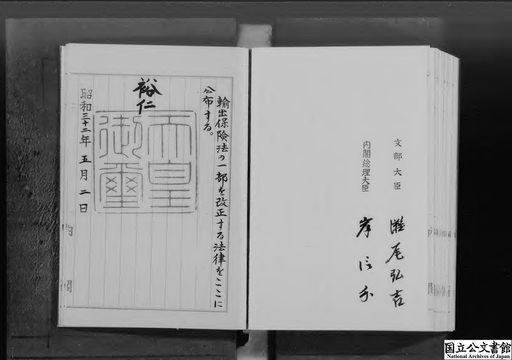 文部大臣 灘尾弘吉
内閣総理大臣 岸信介
輸出保険法の一部を改正する法律をここに
公布する。
裕仁
天皇
御璽
昭和三十二年五月二日
国立公文書館
National Archives of Japan